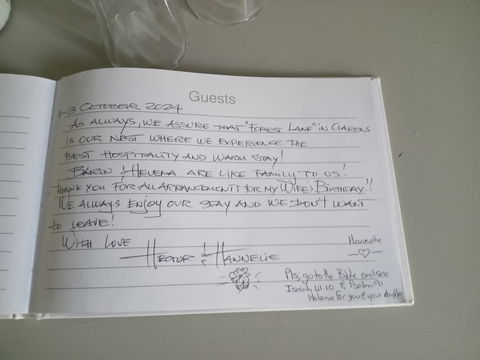 Guests
1-3 OCTOBER 2024
AS ALWAYS, WE ASSURE THAT "FOREST LANE" IN CLARENS
IS OUR NEST WHERE WE EXPERIENCE THE
BEST HOSPITALITY AND WARM STAY!
BARON & HELENA ARE LIKE FAMILY TO US!
THANK YOU FOR ALL ARRANGEMENTS FOR MY WIFE'S BIRTHDAY!!
WE ALWAYS ENJOY OUR STAY AND WE DON'T WANT
TO LEAVE!
WITH LOVE
HECTOR & HANNELIE
Hanneke
Pls, go to the Bible and see
Isaiah 41:10 & Psalm 91
Helena for you & your